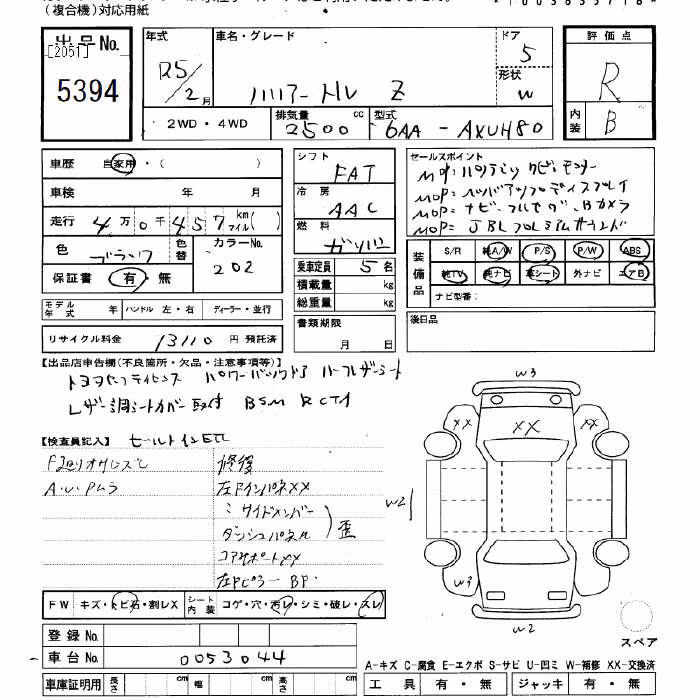 (複合機)対応用紙
出品No.
[2051]
5394
年式
25/2月
車名・グレード
ハリアー Z
ドア
5
形状
W
評価点
R
内装
B
2WD・4WD
排気量
2500 cc
型式
6AA-AXUH80
車歴 自家用・( )
車検 年 月
走行 4万0千457 kmマイル( )
色 ブラック 色替 カラーNo. 202
保証書 有・無
シフト
FAT
冷房
AAC
燃料
ガソリン
乗車定員 5名
積載量 kg
総重量 kg
書類期限
月 日
セールスポイント
MOP:パノラミックビューモニター
MOP:ヘッドアップディスプレイ
MOP:ナビ フルセグ Bカメラ
MOP:JBLプレミアムサウンド
装備品
S/R 純A/W P/S P/W ABS
純TV 純ナビ 革シート 外ナビ エアB
ナビ型番:
後日品
モデル年式 年 ハンドル 左・右 ディーラー・並行
リサイクル料金 13110 円 預託済
【出品店申告欄(不良箇所・欠品・注意事項等)】
トヨタセーフティセンス パワーバックドア ハーフレザーシート
レザー調シートカバー取付 BSM RCTA
【検査員記入】 ビルトインETC
A・U・Pムラ
修復
左Fインパネ XX
〃サイドメンバー
ダッシュパネル
歪
コアサポート XX
左Fピラー BP
W3
XX
XX
W2
W3
W2
スペア
FW キズ・トビ石・割レX シート内装 コゲ・穴・汚レ・シミ・破レ・スレ
登録No.
車台No. 0053044
車庫証明用 長さ cm 幅 cm 高さ cm
A-キズ C-腐食 E-エクボ S-サビ U-凹ミ W-補修 XX-交換済
工具 有・無 ジャッキ 有・無